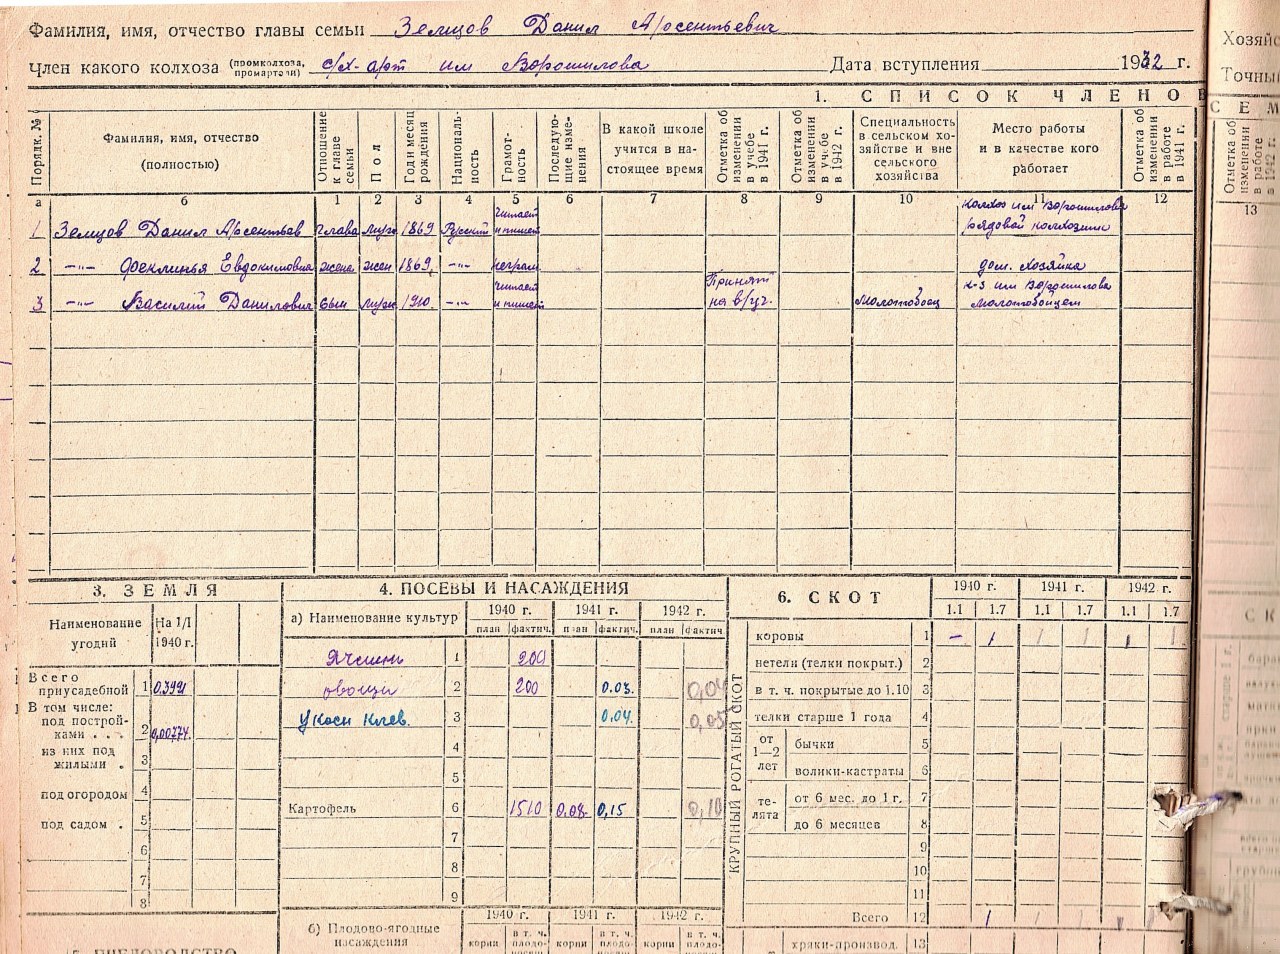 Фамилия, имя, отчество главы семьи Земцов Данил Арсентьевич
Член какого колхоза (промколхоза, промартели) с/х-арт им Ворошилова Дата вступления 1932 г.
1. СПИСОК ЧЛЕНОВ
Порядк. №
Фамилия, имя, отчество (полностью)
Отношение к главе семьи
Пол
Год и месяц рождения
Националь-ность
Грамот-ность
Последую-щие изме-нения
В какой школе учится в на-стоящее время
Отметка об изменении в учебе в 1941 г.
Отметка об изменении в учебе в 1942 г.
Специальность в сельском хо-зяйстве и вне сельского хозяйства
Место работы и в качестве кого работает
Отметка об изменении в работе в 1941 г.
а б 1 2 3 4 5 6 7 8 9 10 11 12
1 Земцов Данил Арсентьев глава муж 1869 Русский читает и пишет колхоз им Ворошилова рядовой колхозник
2 —"— Евдокимовна жена жен 1869 —"— неграм. дом. хозяйка
3 —"— Василий Данилович сын муж 1910. —"— читает и пишет Принят на в/уч. Молотобоец к-з им Ворошилова молотобойцем
3. ЗЕМЛЯ
Наименование угодий На 1/I 1940 г.
Всего приусадебной 1
В том числе:
под построй-ками . . . 2
из них под жилыми . 3
под огородом 4
под садом . 5
6
7
8
4. ПОСЕВЫ И НАСАЖДЕНИЯ
а) Наименование культур 1940 г. 1941 г. 1942 г.
план фактич. план фактич. план фактич.
Ячмень 1 200
овощи 2 200 0.03. 0,04
Укосн клев. 3 0.04. 0,05
4
5
Картофель 6 1510 0.08. 0,15 0,10
7
8
9
б) Плодово-ягодные насаждения 1940 г. 1941 г. 1942 г.
корни в т. ч. плодо- корни в т. ч. плодо- корни в т. ч. плодо-
6. СКОТ 1940 г. 1941 г. 1942 г.
1.1 1.7 1.1 1.7 1.1 1.7
КРУПНЫЙ РОГАТЫЙ СКОТ
коровы 1 – 1 1 1 1 1
нетели (телки покрыт.) 2
в т. ч. покрытые до 1.10 3
телки старше 1 года 4
от 1—2 лет бычки 5
волики-кастраты 6
те-лята от 6 мес. до 1 г. 7
до 6 месяцев 8
9
10
11
Всего 12 1 1 1 1 1
хряки-производ. 13
Хозяйс
Точный
СЕМ
Отметка об изменении в работе в 1942 г.
13
СК